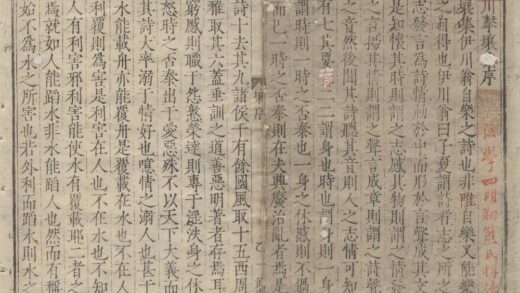 川擊壤 序
壤集伊川翁自樂之詩也非唯自樂又能樂
之自得也伊川翁曰子夏謂詩者志之所之
志發言為詩情動於中而形於言聲成其文
是知懷其時則謂之志感其物則謂之情發
之言揚其情則謂之聲言成章則謂之詩聲
之音然後聞其詩聽其音則人之志情可知
有七其要 二二謂身也時也謂身則一身
謂時則一時之否泰也一身之休慼則不過
而已一時之否泰則在夫興廢治亂者焉是
集序 乙
詩十去其九諸侯千有餘國風取十五西周
雅取其六蓋垂訓之道善惡明著者存焉耳
窮慼則職于怨憝榮達則專于淫泆身之休
怒時之否泰出于愛惡殊不以天下大義而
其詩大率溺于情好也噫情之溺人也甚于
水能載舟亦能覆舟是覆載在水也不在人
利覆則為害是利害在人也不在水也不知
有利害耶利害能使水有覆載耶二者之
焉就如人能蹈水非水能蹈人也然而有稱
始不為水之所害也若外利而蹈水則水之